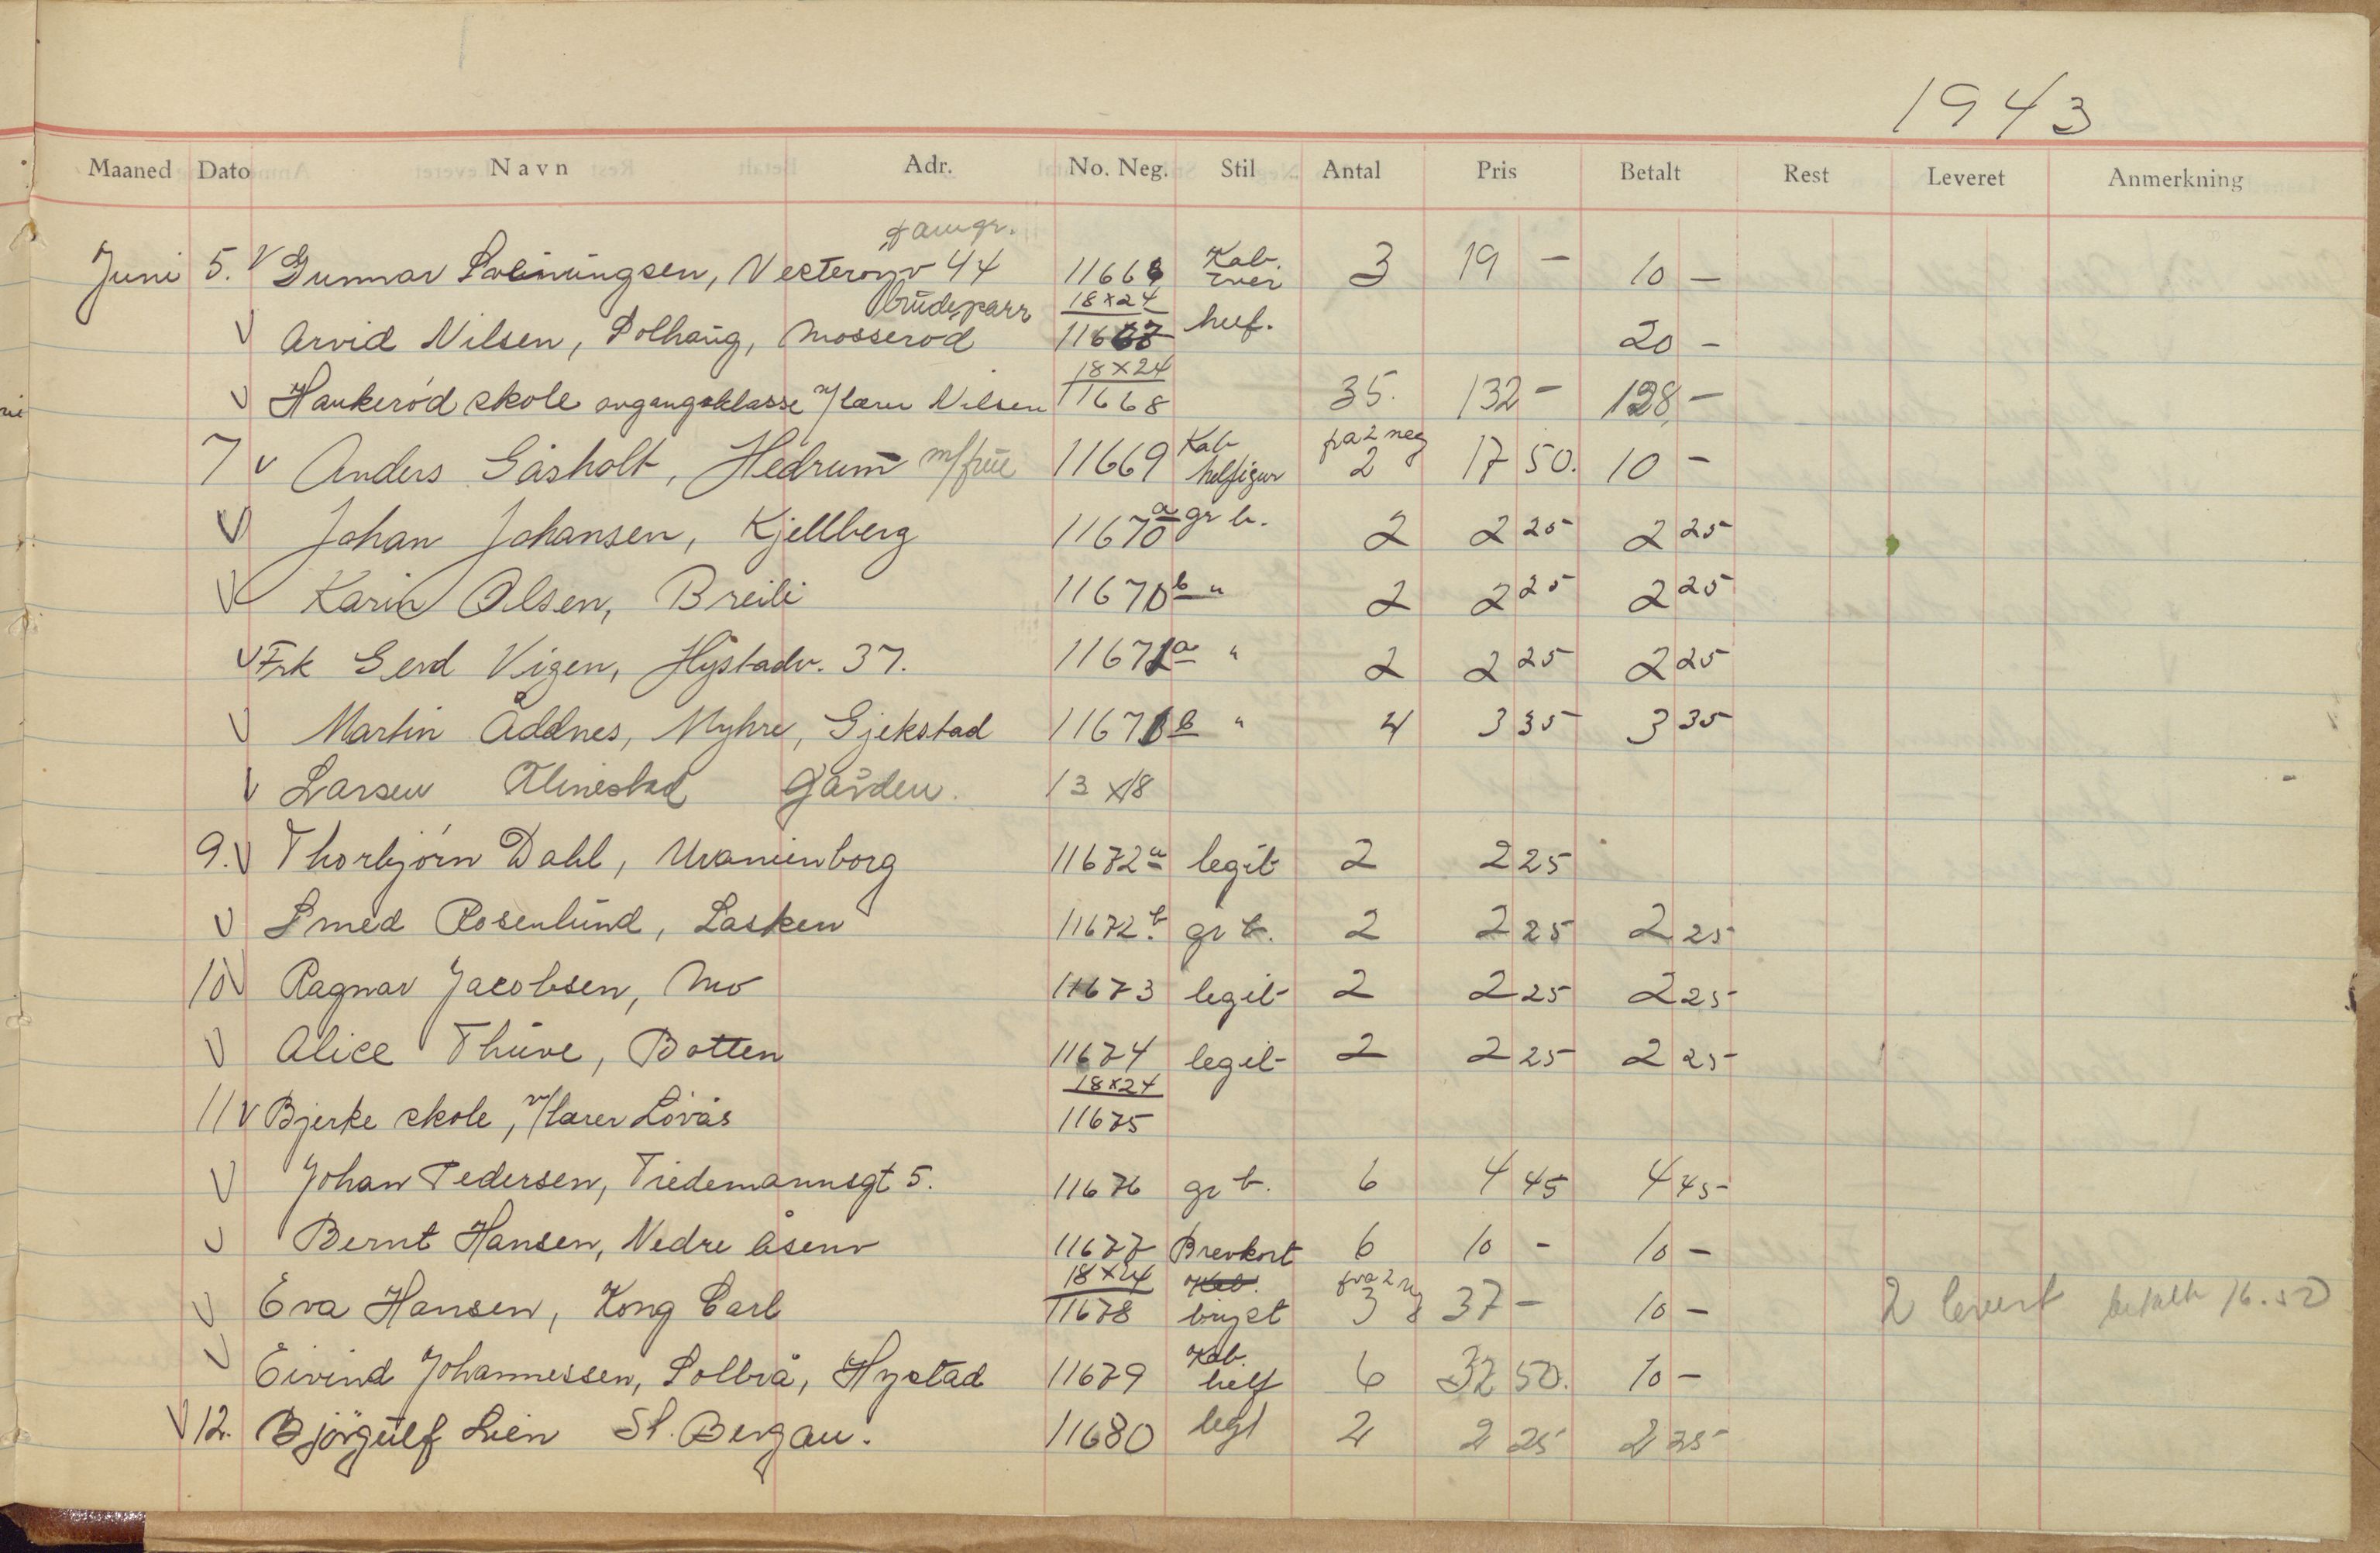 1943
Maaned Dato Navn Adr. No. Neg. Stil Antal Pris Betalt Rest Leveret Anmerkning
famgr.
Juni 5. V Gunnar 44 11666 Kab. 3 19 - 10 -
brudeparr 18x24
V Arvid Nilsen, Solhaug, Mosserød 11667 huf. 20 -
18x24
V Haukerød skole avgangsklasse v/lærer Nilsen 11668 35. 132 - 128, -
7 V Anders Gåsholt, Hedrum m/frue 11669 Kab helfigur fra 2 neg 2 17 50. 10 -
V Johan Johansen, Kjellberg 11670 a gr b. 2 2 25 2 25
V Karin Olsen, Breili 11670 b " 2 2 25 2 25
V Frk Gerd Vigen, Hystadv. 37. 11671 a " 2 2 25 2 25
V Martin Åddnes, Myhre, Gjekstad 11671 b " 4 3 35 3 35
V Larsen Gården. 13x18
9. V Thorbjørn Dahl, Uranienborg 11672 a legit 2 2 25
V Smed Rosenlund, Lasken 11672 b. gr b. 2 2 25 2 25
10 V Ragnar Jacobsen, Mo 11673 legit 2 2 25 2 25
V Alice Thuve, Botten 11674 legit 2 2 25 2 25
18x24
11 V Bjerke skole, v/lærer Lövås 11675
V Johan Pedersen, Tiedemannsgt 5. 11676 gr b. 6 4 45 4 45
V Bernt Hansen, Nedre Åsenv 11677 Brevkort 6 10 - 10 -
18x24 Kab. fra 2 neg
V Eva Hansen, Kong Carl 11678 bryst 3 37 - 10 - 2 levert betalt 16.50
V Eivind Johannessen, Solbrå, Hystad 11679 Kab. helf 6 32 50. 10 -
V 12. Bjørgulf Lien St. Bergan. 11680 legt 2 2 25 2 25